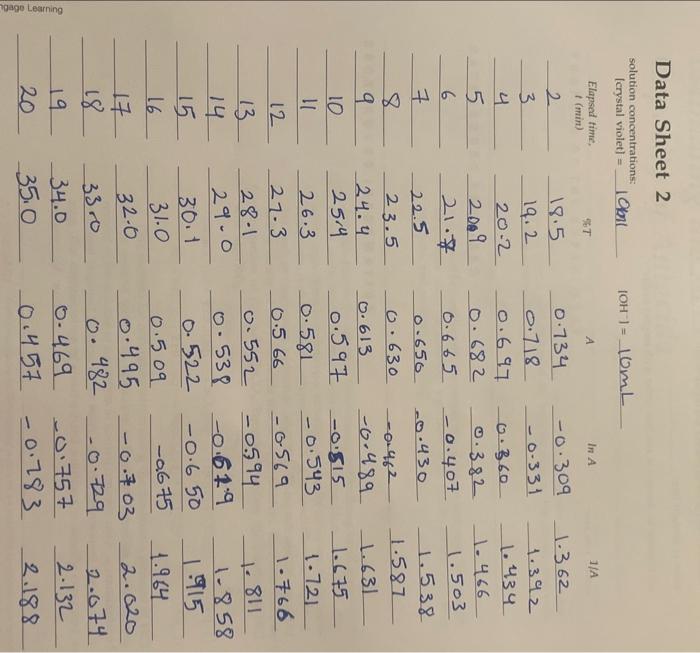 ngage Learning
Data Sheet 2
solution concentrations:
[crystal violet] = 10ml [OH⁻] = 10mL
Elapsed time, t (min) %T A ln A 1/A
2 18.5 0.734 -0.309 1.362
3 19.2 0.718 -0.331 1.392
4 20.2 0.697 -0.360 1.434
5 20.9 0.682 0.382 1.466
6 21.7 0.665 -0.407 1.503
7 22.5 0.650 -0.430 1.538
8 23.5 0.630 -0.462 1.587
9 24.4 0.613 -0.489 1.631
10 25.4 0.597 -0.515 1.675
11 26.3 0.581 -0.543 1.721
12 27.3 0.566 -0.569 1.766
13 28.1 0.552 -0.594 1.811
14 29.0 0.538 -0.619 1.858
15 30.1 0.522 -0.650 1.915
16 31.0 0.509 -0.675 1.964
17 32.0 0.495 -0.703 2.020
18 33.0 0.482 -0.729 2.074
19 34.0 0.469 -0.757 2.132
20 35.0 0.457 -0.783 2.188